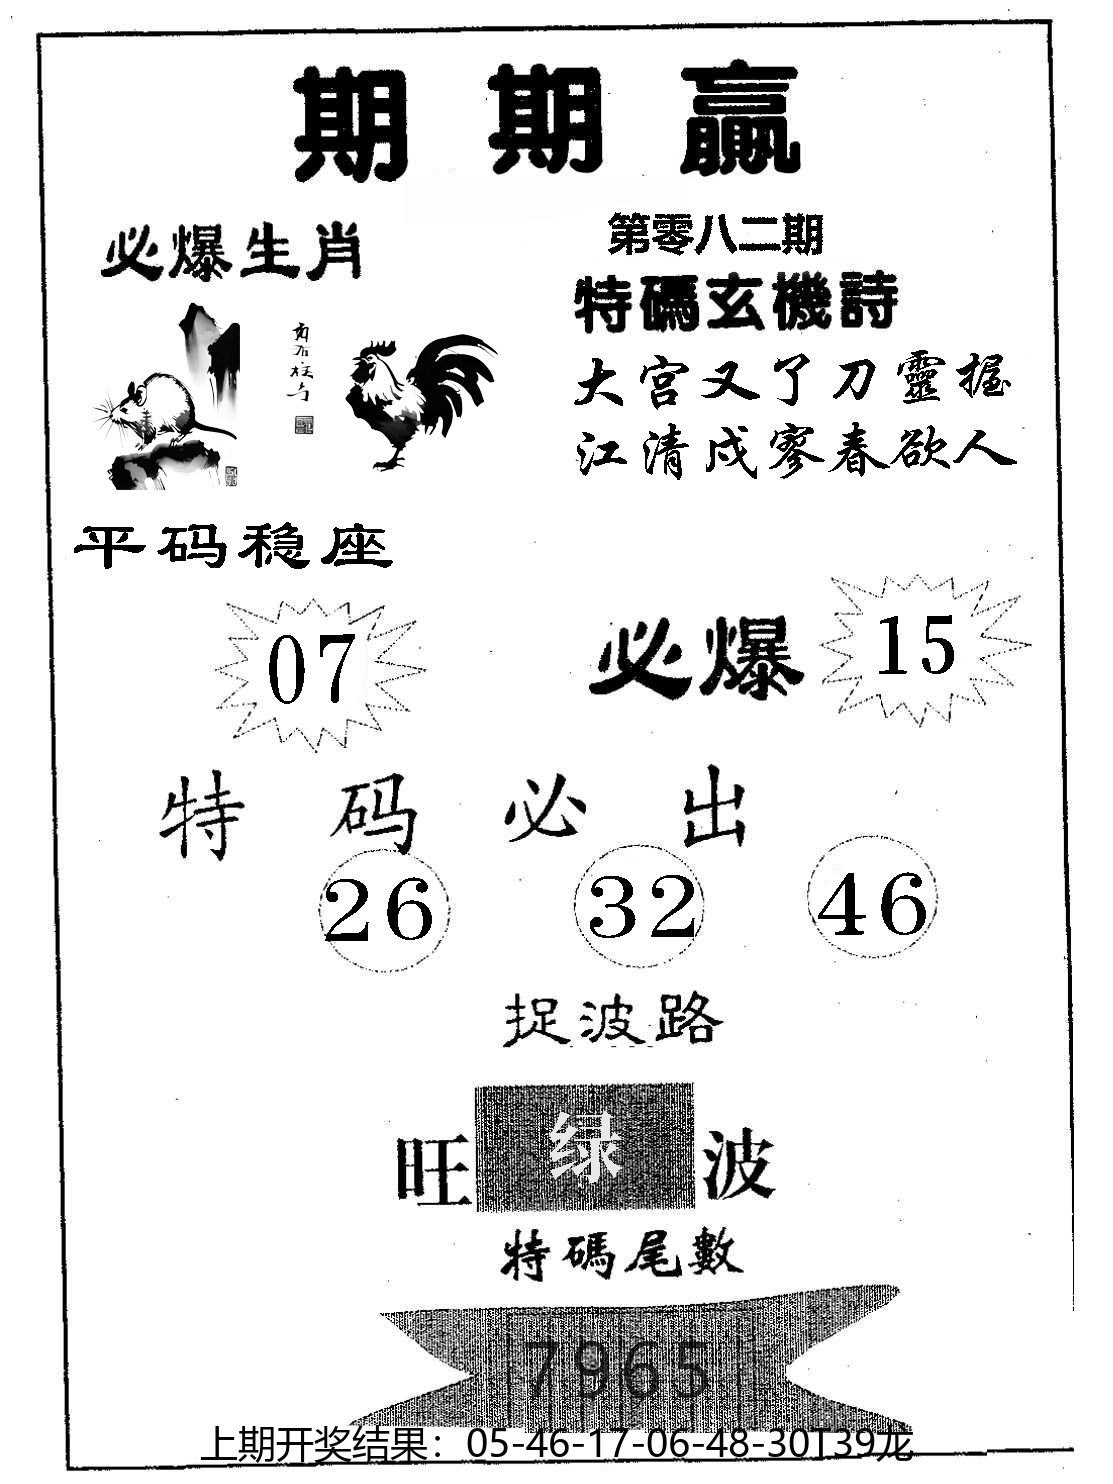 期期赢
必爆生肖
第零八二期
特碼玄機詩
大宫又了刀靈握
江清戍寥春欲人
平码稳座
07
必爆 15
特码必出
26 32 46
捉波路
旺 绿 波
特碼尾數
7965
上期开奖结果：05-46-17-06-48-30T39龙